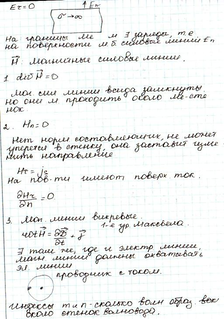 Eτ=0 ↑En
σ→∞
На границы ме м ∃ заряде, те
на поверхности м б силовые линии En
H̄ Магнитные силовые линии.
1 div H̄=0
Маг сил линии всегда замкнуты
но они м проходить около ме-сте
нок
2. Hn=0
Нет норм составляющих, не может
упереться в стенку, она заставит изме
нить направление
Hτ=
На пов-ти имеют поверх ток.
∂Hτ/∂n=0
1. Маг линии вихревые
1-е ур Максвела.
rot H̄=∂D̄/∂t+j̄
∃ там же, где и электр линии,
маг линии должны охватывать
эл. линии
проводник с током.
индексы m и n-сколько волн образ. вок
около стенок волновода.